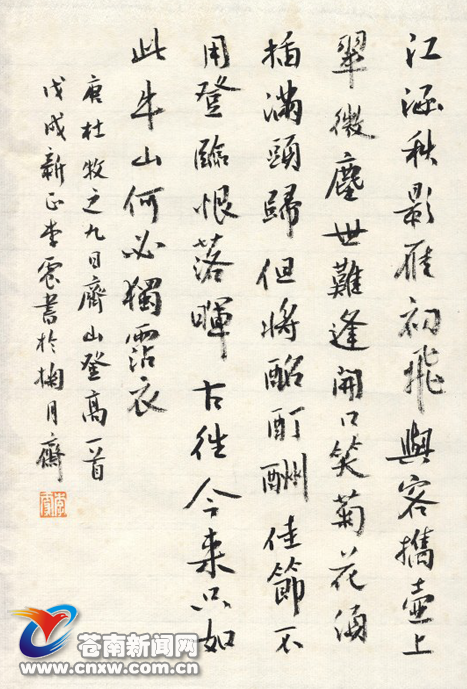 江涵秋影雁初飛與客攜壺上
翠微塵世難逢開口笑菊花須
插滿頭歸但將酩酊酬佳節不
用登臨恨落暉古往今來只如
此牛山何必獨霑衣
唐杜牧之九日齊山登高一首
戊戌新正李震書於掬月齋
苍南新闻网
www.cnxw.com.cn